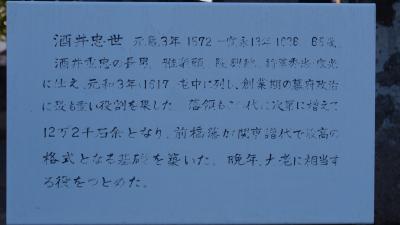 酒井忠世 元亀3年 1572 ー寛永13年 1636 65歳。
酒井重忠の長男、雅楽頭、阿波守、将軍秀忠・家光
に仕え、元和3年(1617)老中に列し、創業期の幕府政治
に最も重い役割を果した。藩領もこの代に次第に増えて
12万2千石余となり、前橋藩が関東譜代で最高の
格式となる基礎を築いた。晩年、大老に相当す
る役をつとめた。